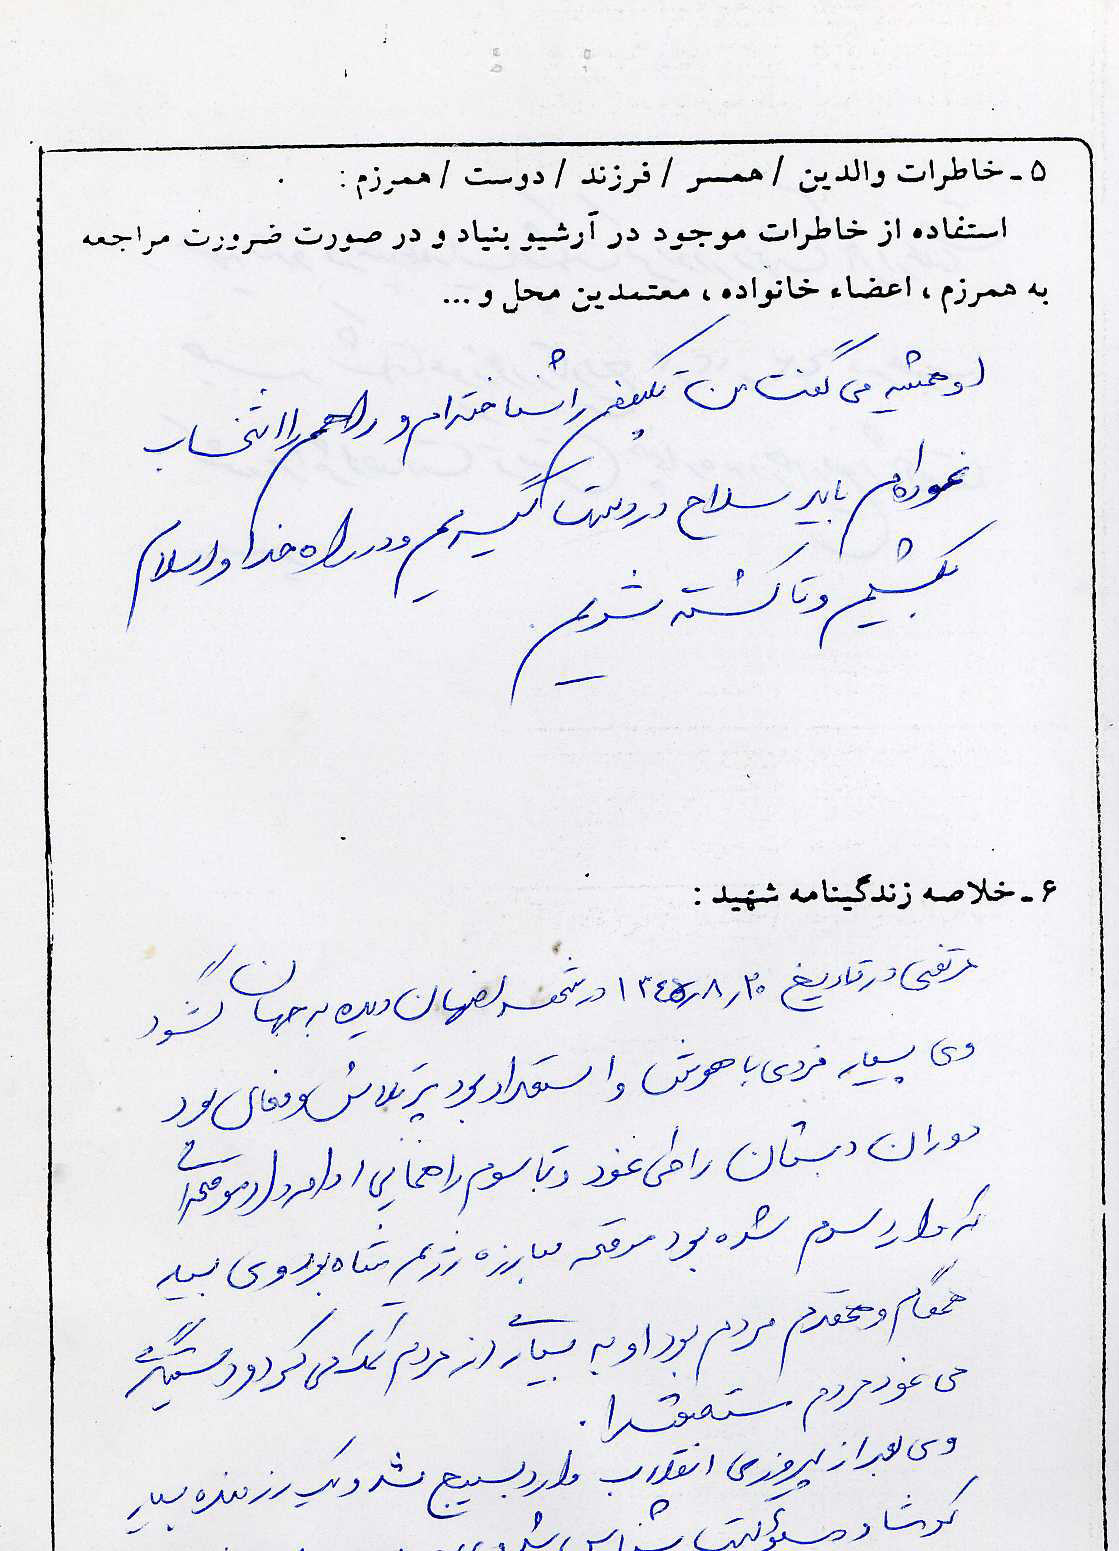 ۵ - خاطرات والدین / همسر / فرزند / دوست / همرزم :
استفاده از خاطرات موجود در آرشیو بنیاد و در صورت ضرورت مراجعه
به همرزم ، اعضاء خانواده ، معتمدین محل و ...
او همیشه می گفت من تکلیفم را شناخته ام و راهم را انتخاب
نموده ام باید سلاح در دست گیریم و در راه خدا و اسلام
بکشیم و تا کشته شویم .
۶ - خلاصه زندگینامه شهید :
مرتضی در تاریخ ۳۰ر۸ر۱۳۴۵ در شهر اصفهان دیده به جهان گشود
وی بسیار فردی با هوش و استعداد بود پرتلاش و فعال بود
دوران دبستان را طی نمود و تا سوم راهنمایی ادامه داد موقعی
که وارد سوم شده بود موقع مبارزه رژیم شاه بود وی بسیار
همگام و همقدم مردم بود او به بسیاری از مردم کمک می کرد و دستگیری
می نمود مردم مستضعف را .
وی بعد از پیروزی انقلاب وارد بسیج شد و یک رزمنده بسیار
کوشا و مسئولیت شناس شد